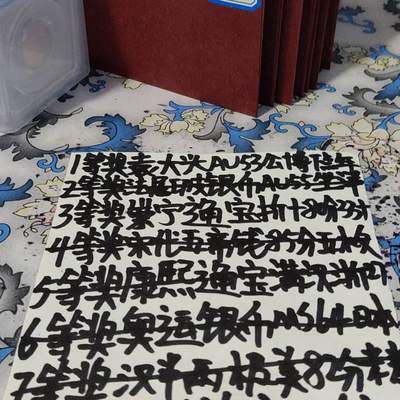 1等奖袁大头AU53公博年
2等奖法属银币AU55坐洋
3等奖崇宁通宝折十80分
4等奖宋代五帝钱85分五枚
5等奖康熙通宝满汉浙
6等奖奥运银币MS64日本
7等奖汉半两板类82分